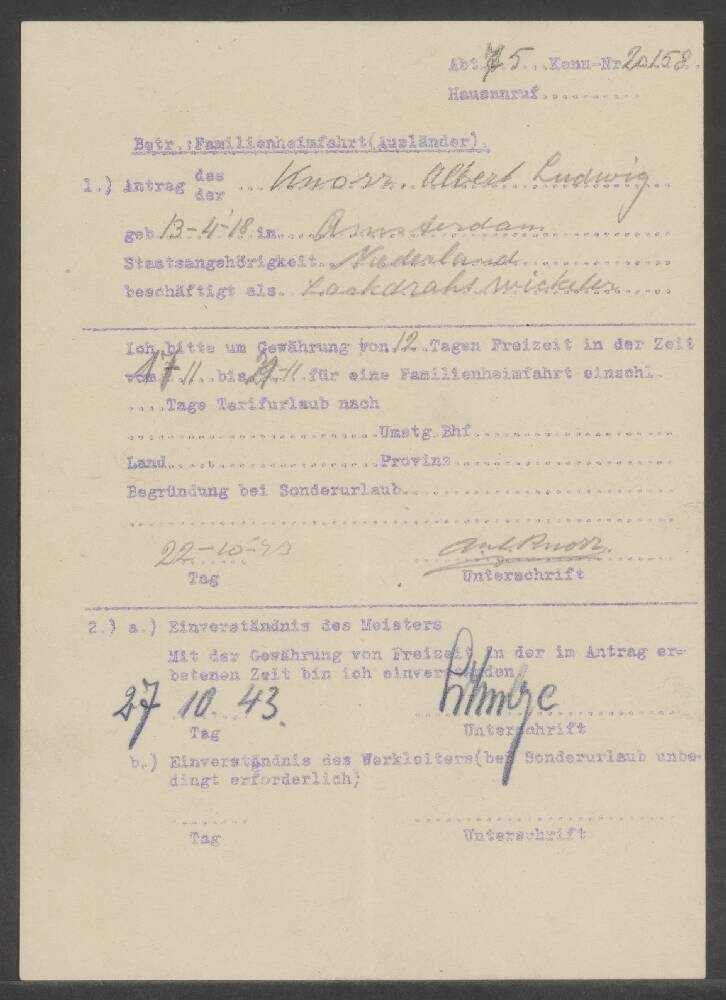 Abt. 75...Kenn-Nr 20158.
Hausanruf...........
Betr.:Familienheimfahrt(Ausländer).
1.) Antrag des
der ... Knorr. Albert Ludwig
geb. 13-4-'18 in.... Amsterdam
Staatsangehörigkeit. Niederland
beschäftigt als.. Lackdrahtwickeler
Ich bitte um Gewährung von 12..Tagen Freizeit in der Zeit
vom 17.11...bis 29-11.für eine Familienheimfahrt einschl.
....Tage Tarifurlaub nach
..............................Umstg.Bhf........................
Land..........................Provinz........................
Begründung bei Sonderurlaub................................
................................................................
22-10-43
Tag Unterschrift
2.) a.) Einverständnis des Meisters
Mit der Gewährung von Freizeit in der im Antrag er=
betenen Zeit bin ich einverstanden
27 10 43.
Tag Unterschrift
b.) Einverständnis des Werkleiters(bei Sonderurlaub unbe-
dingt erforderlich)
......... ...............................
Tag Unterschrift